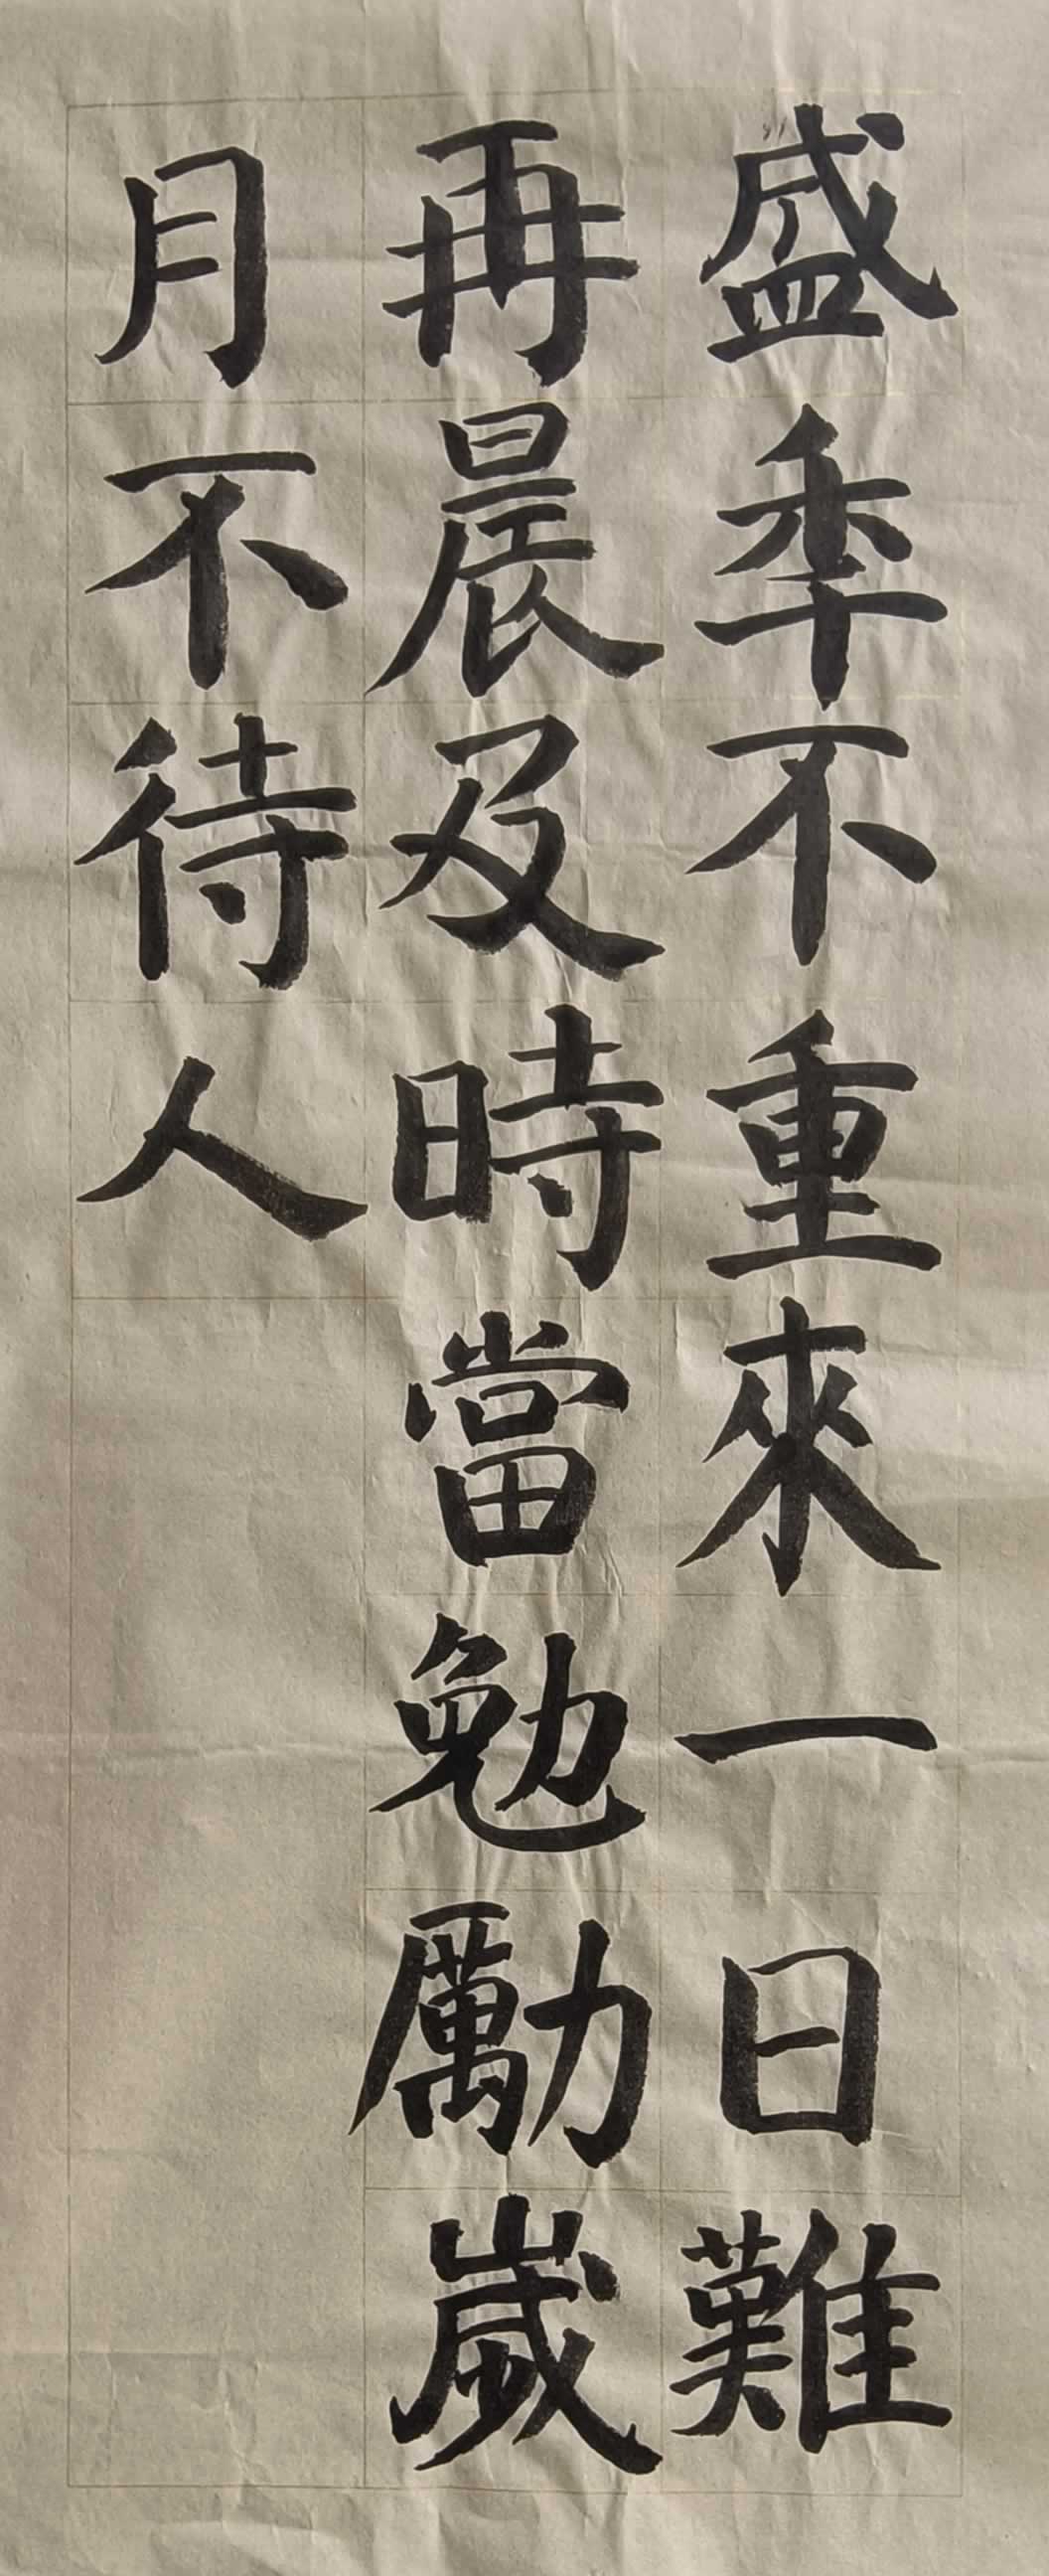 盛秊不重來一日難
再晨及時當勉勵歲
月不待人